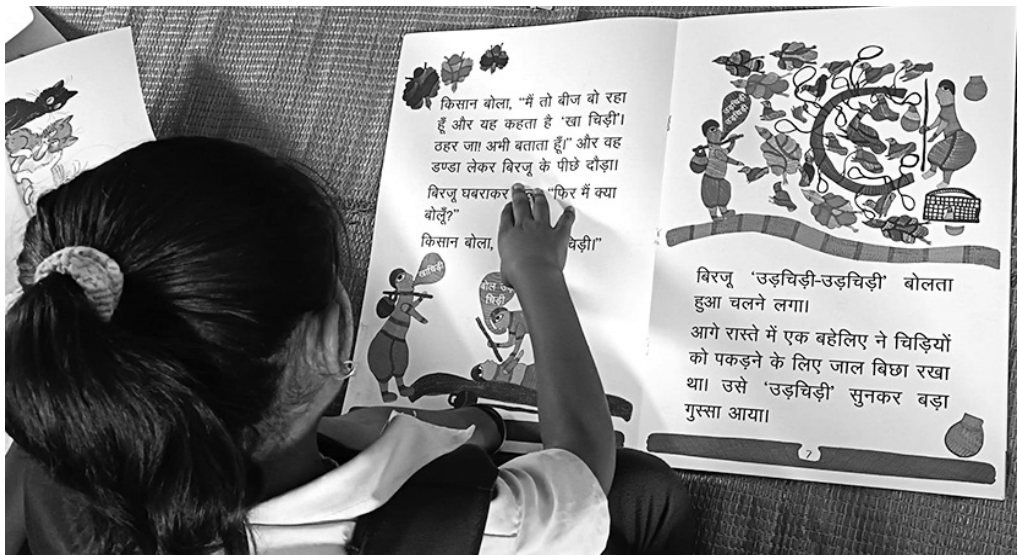 किसान बोला, “मैं तो बीज बो रहा
हूँ और यह कहता है ‘खा चिड़ी’।
ठहर जा! अभी बताता हूँ!” और वह
डण्डा लेकर बिरजू के पीछे दौड़ा।
बिरजू घबराकर “फिर मैं क्या
बोलूँ?”
किसान बोला, चिड़ी।”
खाचिड़ी
बोल उड़
चिड़ी
उड़चिड़ी
उड़चिड़ी
बिरजू ‘उड़चिड़ी-उड़चिड़ी’ बोलता
हुआ चलने लगा।
आगे रास्ते में एक बहेलिए ने चिड़ियों
को पकड़ने के लिए जाल बिछा रखा
था। उसे ‘उड़चिड़ी’ सुनकर बड़ा
गुस्सा आया।
7